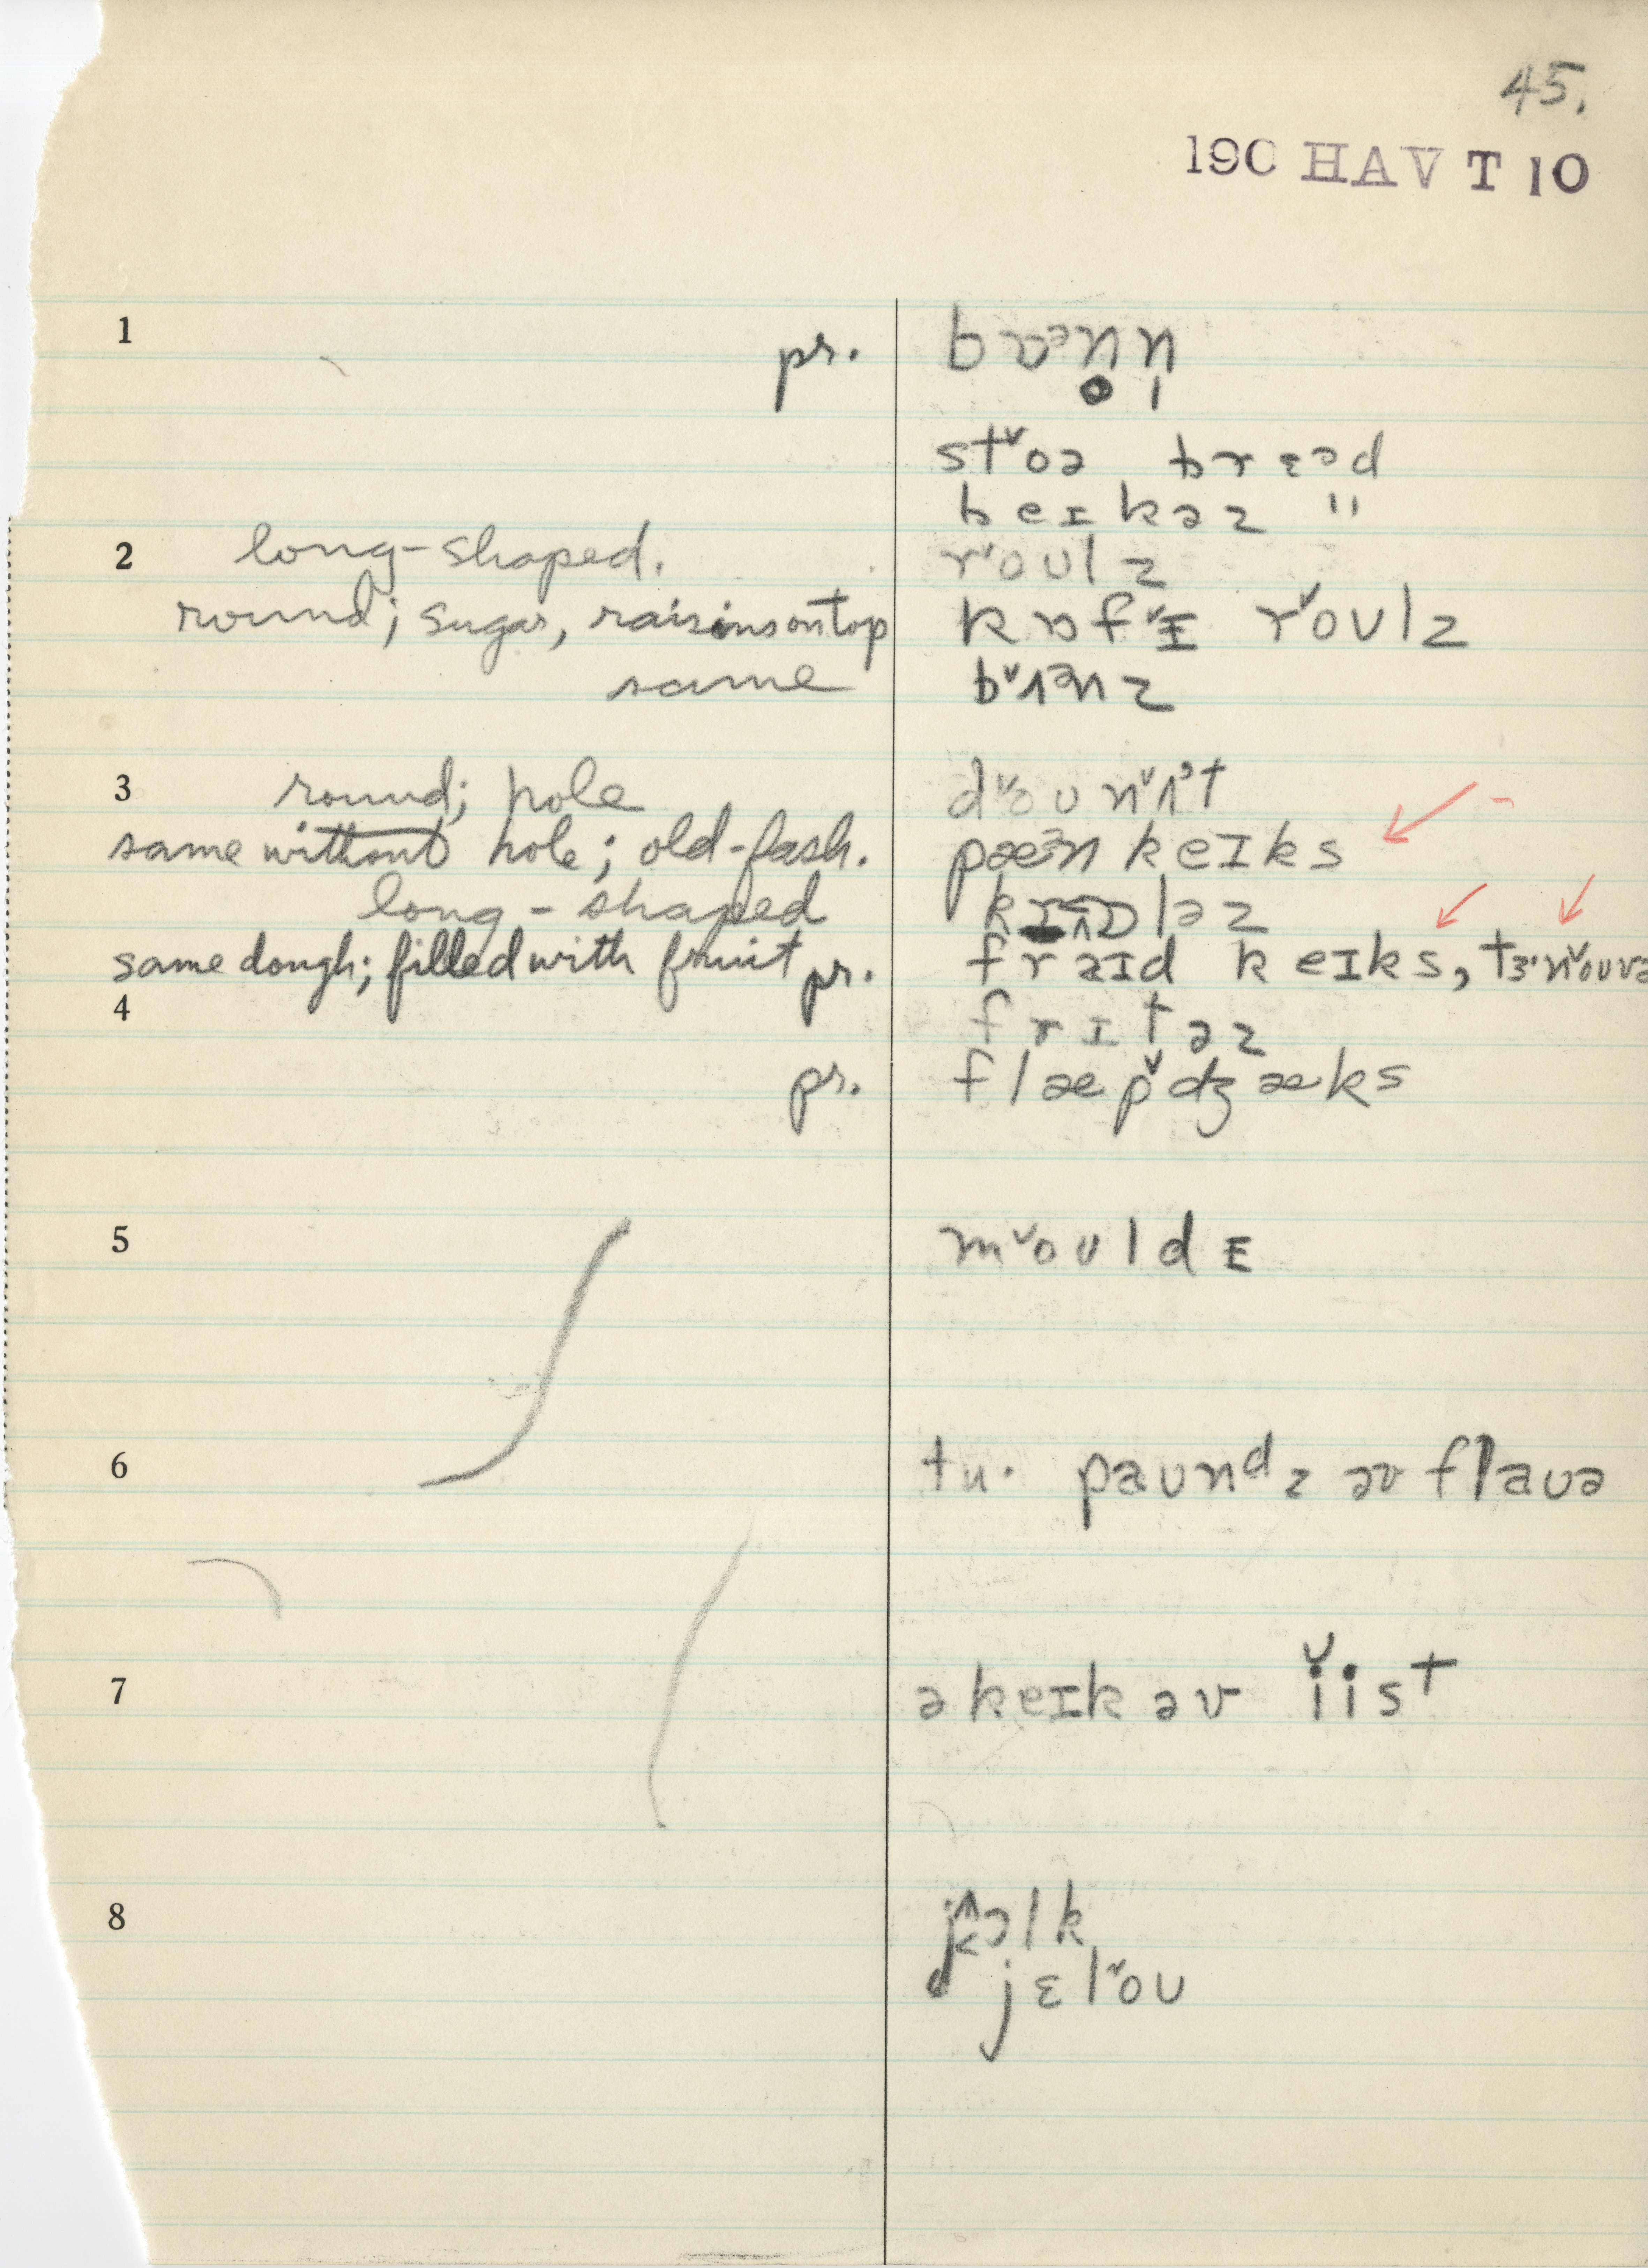 45.
190 HAV T 10
1 pr.
stˇoə brɛəd
beɪkəz "
2 long-shaped. rˇoʊlz
round; sugar, raisins on top kɒfˇɪ rˇoʊlz
same bˇʌənz
3 round; hole dˇoʊnˇʌˀt
same without hole; old-fash. pæənkeɪks
long-shaped
same dough; filled with fruit pr. fraɪd keɪks,
4 frɪtəz
pr. flæpˇdʒæks
5 mˇoʊldɪ
6 tu· paʊnᵈz əv flaʊə
7 əkeɪk əv ǐist
8
jɛlˇoʊ